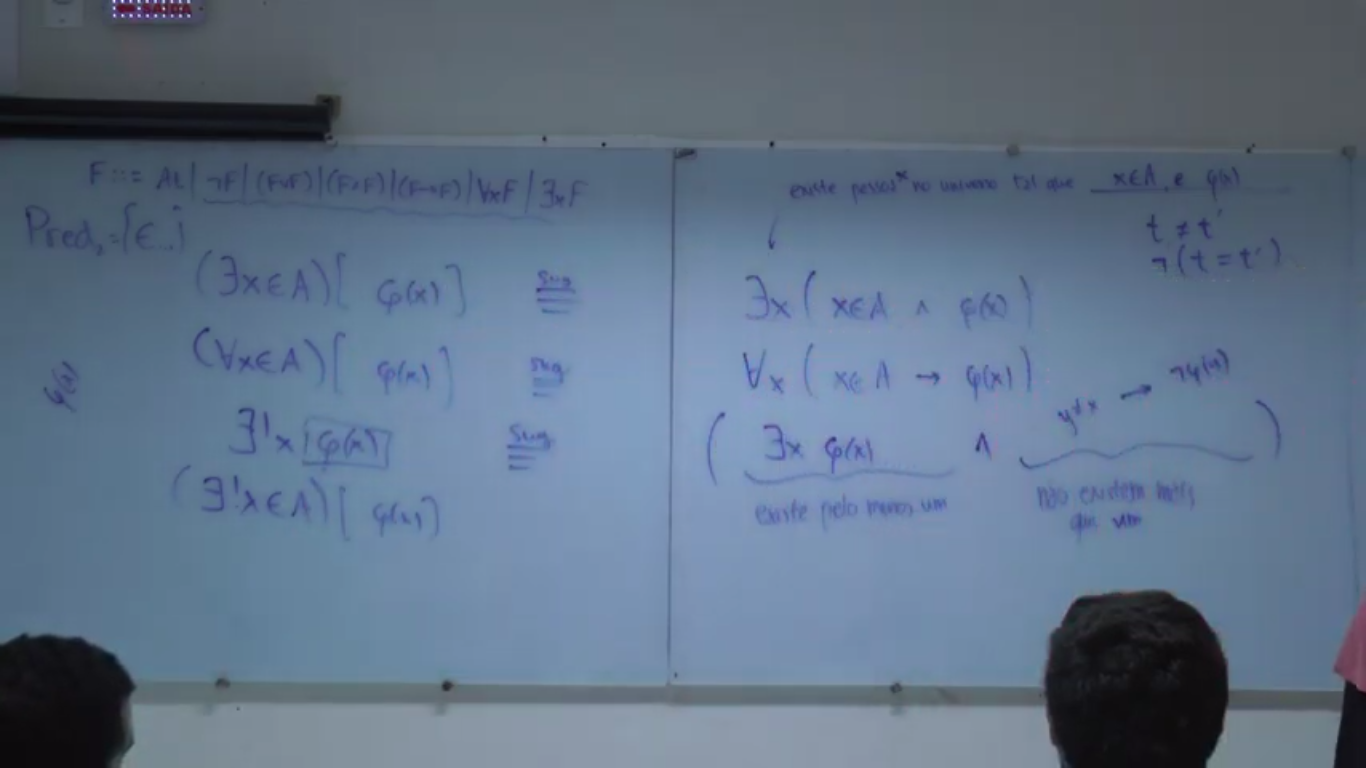 SAÍDA
F ::= At | ¬F | (F∨F) | (F∧F) | (F→F) | ∀xF | ∃xF
Pred₂ = {∈ ...}
(∃x∈A)[ φ(x) ] sug
(∀x∈A)[ φ(x) ] sug
φ(x)
∃!x φ(x) sug
(∃!x∈A)[ φ(x) ]
existe pessoa x no universo tal que x∈A e φ(x)
t ≠ t'
¬(t = t')
∃x ( x∈A ∧ φ(x) )
∀x ( x∈A → φ(x) )
( ∃x φ(x) ∧ → ¬φ(y) )
existe pelo menos um
não existem mais
que um